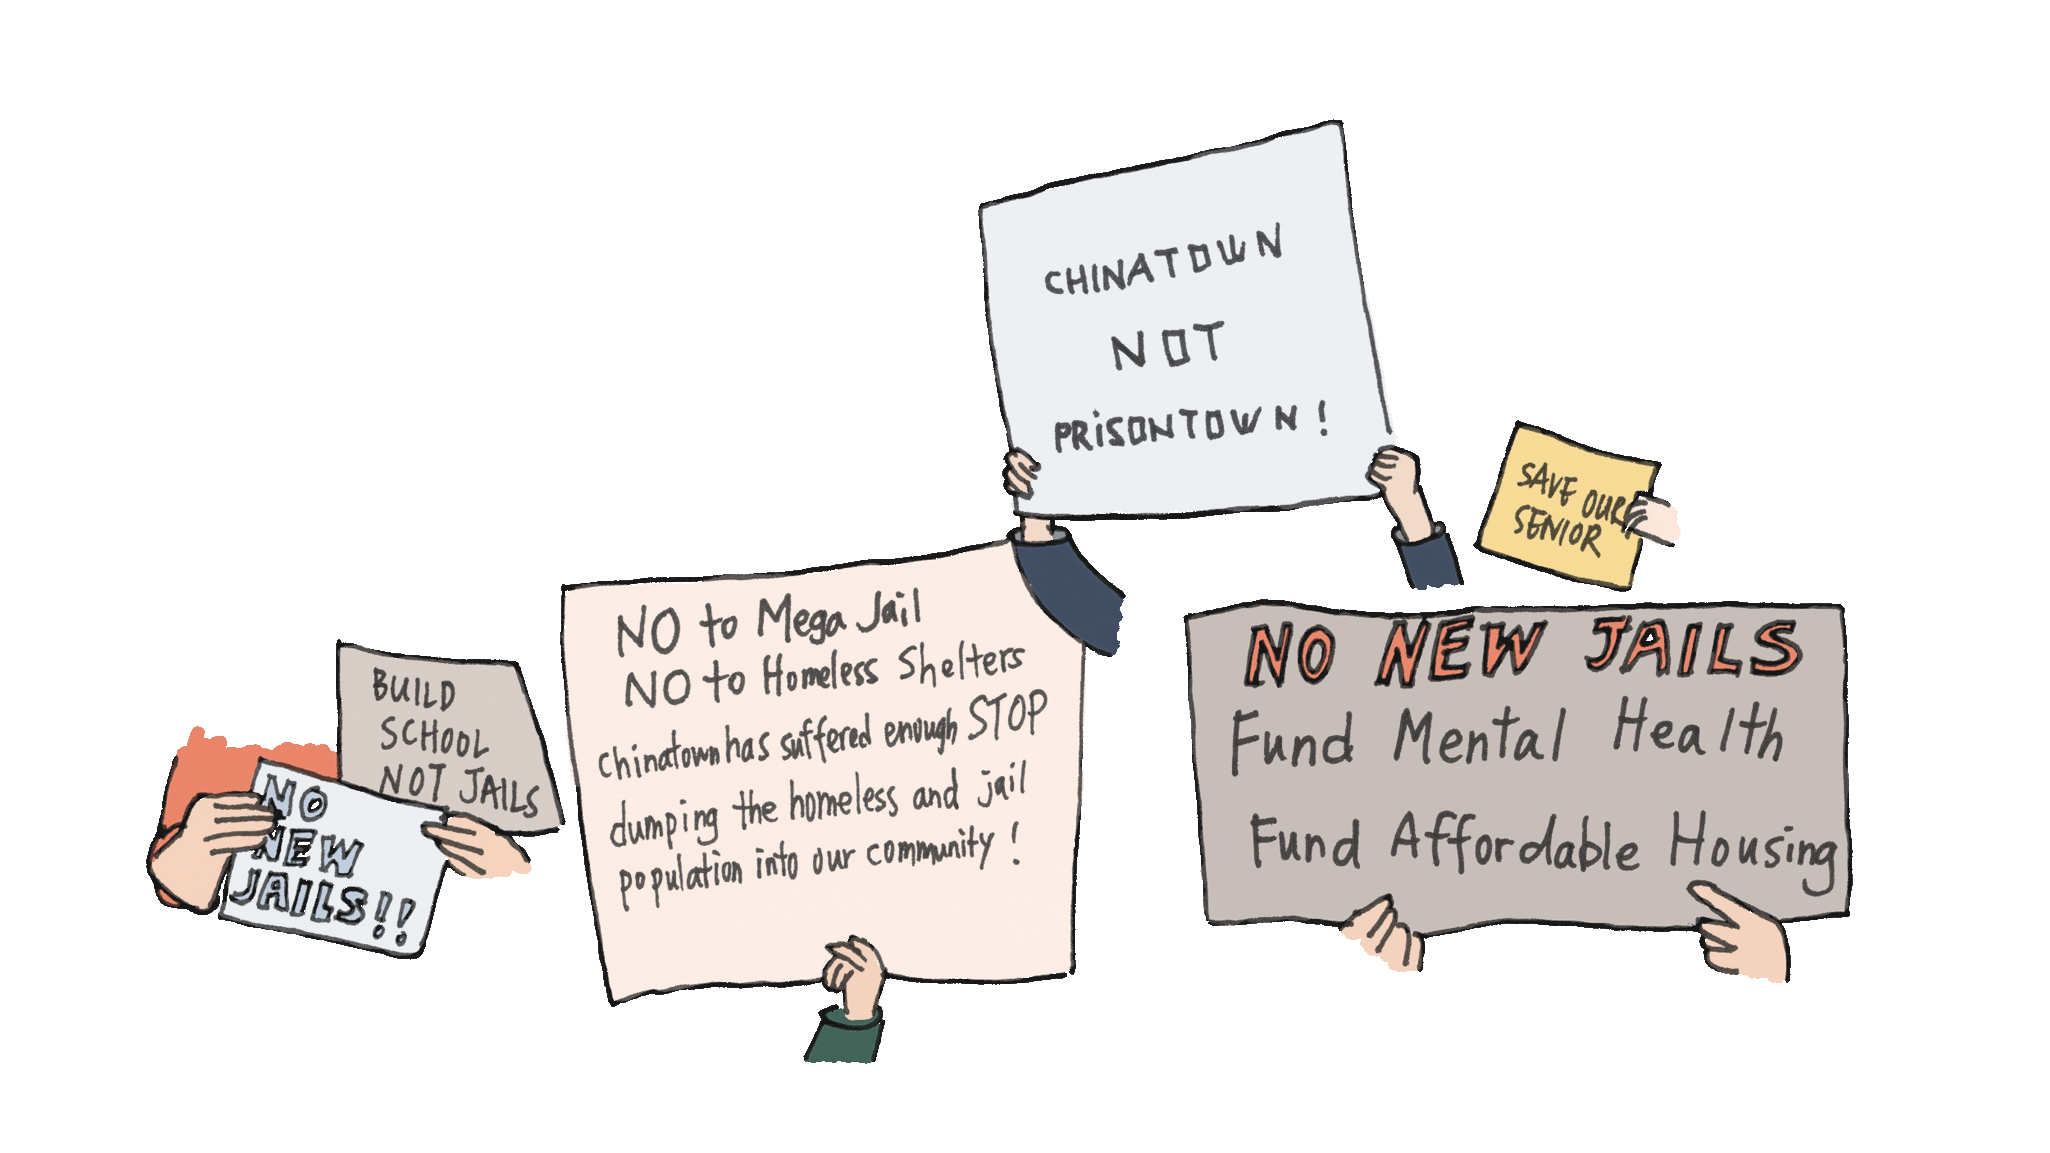 CHINATOWN
NOT
PRiSONTOWN!
SAVE OUR
SENIOR
BUILD
SCHOOL
NOT JAILS
NO
NEW
JAILS!!
NO to Mega Jail
NO to Homeless Shelters
Chinatown has suffered enough STOP
dumping the homeless and jail
population into our community!
NO NEW JAILS
Fund Mental Health
Fund Affordable Housing